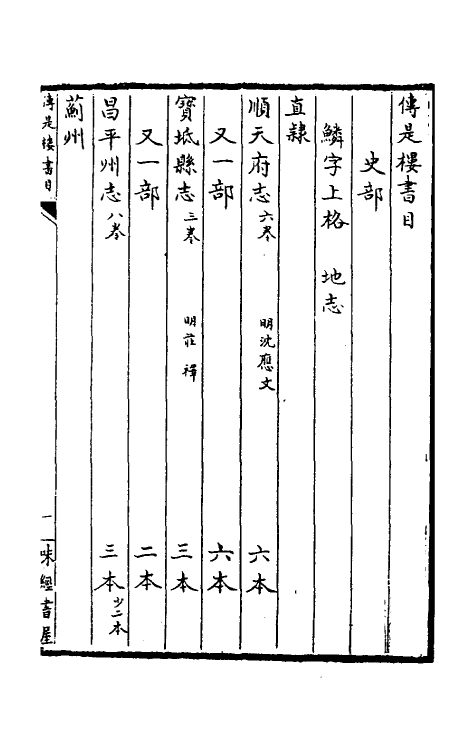 傳是樓書目
史部
鱗字上格 地志
直隷
順天府志六卷 明沈應文 六本
又一部 六本
寳坻縣志三卷 明莊襗 三本
又一部 二本
昌平州志八卷 三本少二本
薊州
傳是樓書目 一 味經書屋